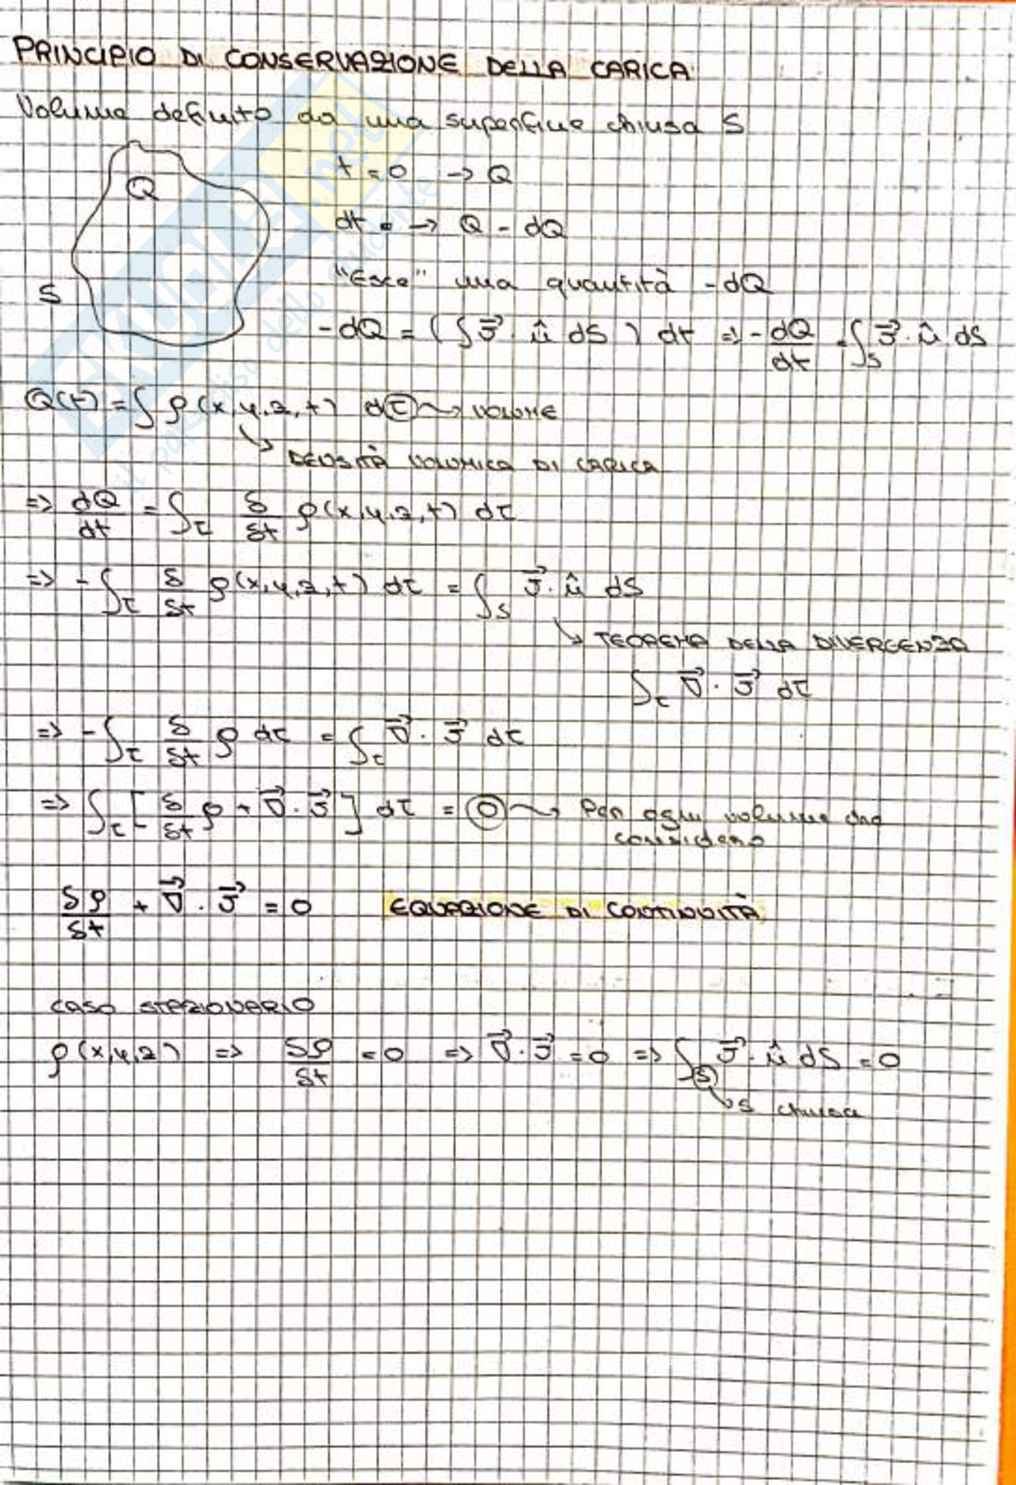 PRINCIPIO DI CONSERVAZIONE DELLA CARICA
Volume definito da una superficie chiusa S
Q
S
t = 0 → Q
dt = → Q - dQ
"Esce" una quantità -dQ
-dQ = (∫ J⃗ · û dS ) dt ⇒ -dQ/dt = ∫_S J⃗ · û dS
Q(t) = ∫ ρ(x,y,z,t) dτ → VOLUME
↳ DENSITÀ VOLUMICA DI CARICA
⇒ dQ/dt = ∫_τ δ/δt ρ(x,y,z,t) dτ
⇒ -∫_τ δ/δt ρ(x,y,z,t) dτ = ∫_S J⃗ · û dS
↳ TEOREMA DELLA DIVERGENZA
∫_τ ∇⃗ · J⃗ dτ
⇒ -∫_τ δ/δt ρ dτ = ∫_τ ∇⃗ · J⃗ dτ
⇒ ∫_τ [δ/δt ρ + ∇⃗ · J⃗] dτ = 0 → Per ogni volume che
considero
δρ/δt + ∇⃗ · J⃗ = 0 EQUAZIONE DI CONTINUITÀ
CASO STAZIONARIO
ρ(x,y,z) ⇒ δρ/δt = 0 ⇒ ∇⃗ · J⃗ = 0 ⇒ ∫_S J⃗ · û dS = 0
↳ S chiusa